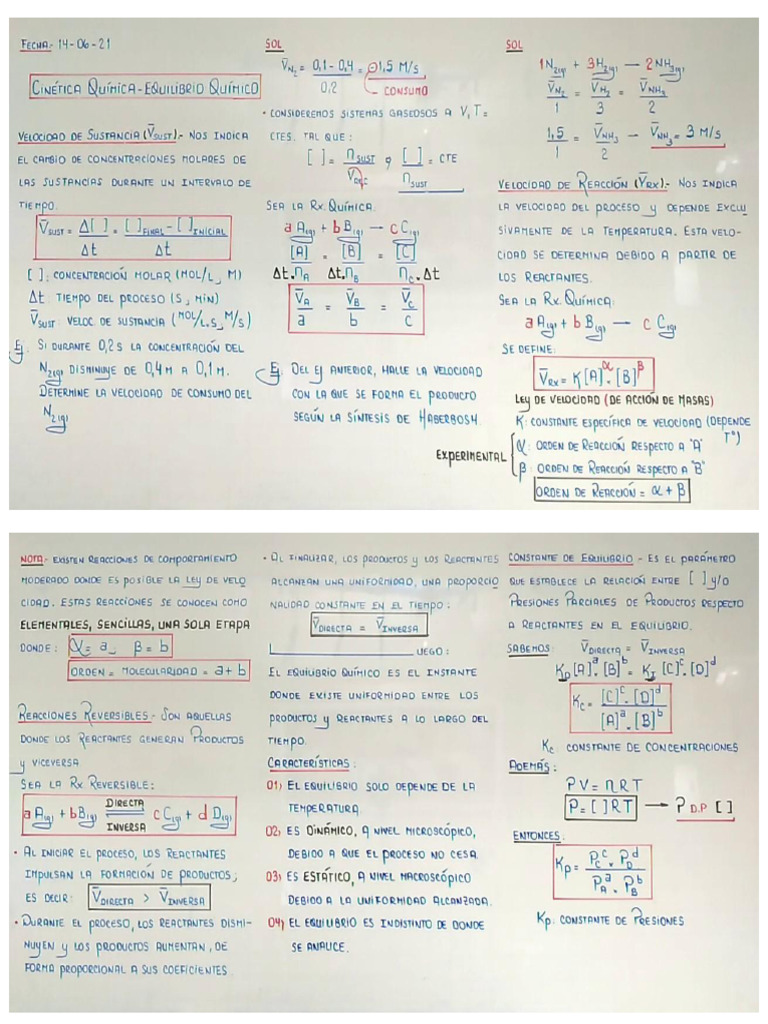 FECHA:- 14-06-21
CINÉTICA QUÍMICA-EQUILIBRIO QUÍMICO
VELOCIDAD DE SUSTANCIA (V̅SUST):- NOS INDICA
EL CAMBIO DE CONCENTRACIONES MOLARES DE
LAS SUSTANCIAS DURANTE UN INTERVALO DE
TIEMPO.
V̅SUST = Δ[ ]/Δt = ([ ]FINAL - [ ]INICIAL)/Δt
[ ]: CONCENTRACIÓN MOLAR (MOL/L, M)
Δt: TIEMPO DEL PROCESO (S, MIN)
V̅SUST: VELOC. DE SUSTANCIA (MOL/L.S, M/S)
Ej. SI DURANTE 0,2 S LA CONCENTRACIÓN DEL
N2(g) DISMINUYE DE 0,4 M A 0,1 M.
DETERMINE LA VELOCIDAD DE CONSUMO DEL
N2(g)
SOL
V̅N2 = (0,1 - 0,4)/0,2 = -1,5 M/S
CONSUMO
• CONSIDEREMOS SISTEMAS GASEOSOS A V, T =
CTES, TAL QUE:
[ ] = nSUST/VREC → [ ]/nSUST = CTE
SEA LA RX. QUÍMICA.
a A(g) + b B(g) → c C(g)
[A]/Δt.nA = [B]/Δt.nB = [C]/nC.Δt
V̅A/a = V̅B/b = V̅C/c
Ej. DEL EJ ANTERIOR, HALLE LA VELOCIDAD
CON LA QUE SE FORMA EL PRODUCTO
SEGÚN LA SÍNTESIS DE HABERBOSH.
SOL
1N2(g) + 3H2(g) → 2NH3(g)
V̅N2/1 = V̅H2/3 = V̅NH3/2
1,5/1 = V̅NH3/2 → V̅NH3 = 3 M/S
VELOCIDAD DE REACCIÓN (V̅RX):- NOS INDICA
LA VELOCIDAD DEL PROCESO Y DEPENDE EXCLU
SIVAMENTE DE LA TEMPERATURA. ESTA VELO-
CIDAD SE DETERMINA DEBIDO A PARTIR DE
LOS REACTANTES.
SEA LA RX. QUÍMICA:
a A(g) + b B(g) → c C(g)
SE DEFINE:
V̅RX = K[A]^α . [B]^β
LEY DE VELOCIDAD (DE ACCIÓN DE MASAS)
K: CONSTANTE ESPECÍFICA DE VELOCIDAD (DEPENDE
T°)
EXPERIMENTAL { α: ORDEN DE REACCIÓN RESPECTO A "A"
β: ORDEN DE REACCIÓN RESPECTO A "B"
ORDEN DE REACCIÓN = α + β
NOTA:- EXISTEN REACCIONES DE COMPORTAMIENTO
MODERADO DONDE ES POSIBLE LA LEY DE VELO
CIDAD. ESTAS REACCIONES SE CONOCEN COMO
ELEMENTALES, SENCILLAS, UNA SOLA ETAPA
DONDE: α = a , β = b
ORDEN = MOLECULARIDAD = a + b
REACCIONES REVERSIBLES:- SON AQUELLAS
DONDE LOS REACTANTES GENERAN PRODUCTOS
Y VICEVERSA
SEA LA RX REVERSIBLE:
a A(g) + b B(g) DIRECTA ⇌ INVERSA c C(g) + d D(g)
• AL INICIAR EL PROCESO, LOS REACTANTES
IMPULSAN LA FORMACIÓN DE PRODUCTOS;
ES DECIR: V̅DIRECTA > V̅INVERSA
• DURANTE EL PROCESO, LOS REACTANTES DISMI-
NUYEN Y LOS PRODUCTOS AUMENTAN, DE
FORMA PROPORCIONAL A SUS COEFICIENTES
• AL FINALIZAR, LOS PRODUCTOS Y LOS REACTANTES
ALCANZAN UNA UNIFORMIDAD, UNA PROPORCIO
NALIDAD CONSTANTE EN EL TIEMPO:
V̅DIRECTA = V̅INVERSA
LUEGO:
EL EQUILIBRIO QUÍMICO ES EL INSTANTE
DONDE EXISTE UNIFORMIDAD ENTRE LOS
PRODUCTOS Y REACTANTES A LO LARGO DEL
TIEMPO.
CARACTERÍSTICAS:
01) EL EQUILIBRIO SOLO DEPENDE DE LA
TEMPERATURA.
02) ES DINÁMICO, A NIVEL MICROSCÓPICO,
DEBIDO A QUE EL PROCESO NO CESA.
03) ES ESTÁTICO, A NIVEL MACROSCÓPICO
DEBIDO A LA UNIFORMIDAD ALCANZADA.
04) EL EQUILIBRIO ES INDISTINTO DE DONDE
SE ANALICE.
CONSTANTE DE EQUILIBRIO - ES EL PARÁMETRO
QUE ESTABLECE LA RELACIÓN ENTRE [ ] Y/O
PRESIONES PARCIALES DE PRODUCTOS RESPECTO
A REACTANTES EN EL EQUILIBRIO.
SABEMOS: V̅DIRECTA = V̅INVERSA
KD[A]^a.[B]^b = KI[C]^c.[D]^d
KC = [C]^c.[D]^d/[A]^a.[B]^b
KC: CONSTANTE DE CONCENTRACIONES
ADEMÁS:
PV = nRT
P = [ ]RT → P D.P [ ]
ENTONCES:
KP = PC^c . PD^d/PA^a . PB^b
KP: CONSTANTE DE PRESIONES